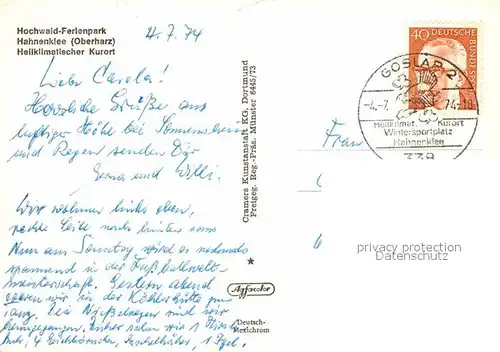 Hochwald-Ferienpark
Hahnenklee (Oberharz)
Heilklimatischer Kurort
4.7.74
Liebe Carola!
Herzliche Grüße aus
luftiger Höhe bei Sonnenschein
und Regen senden Dir
Erna und Willi.
Wir wohnen links oben,
rechte Seite nach hinten raus
Nun am Sonntag wird es nochmals
spannend in der Fußballwelt-
meisterschaft. Gestern abend
waren wir in der Köhlerhütte zu
sind wir
heimgegangen. sahen wir 1
4 Eichhörnchen, 1 Igel.
Cramers Kunstanstalt KG. Dortmund
Freigeg. Reg.-Präs. Münster 6445/73
Agfacolor
Deutsch-
Reichrom
40 DEUTSCHE
BUNDESPOST
GOSLAR 2
-4.-7. 74-18
Heilklimat. Kurort
Wintersportplatz
Hahnenklee
338
Frau
privacy protection
Datenschutz